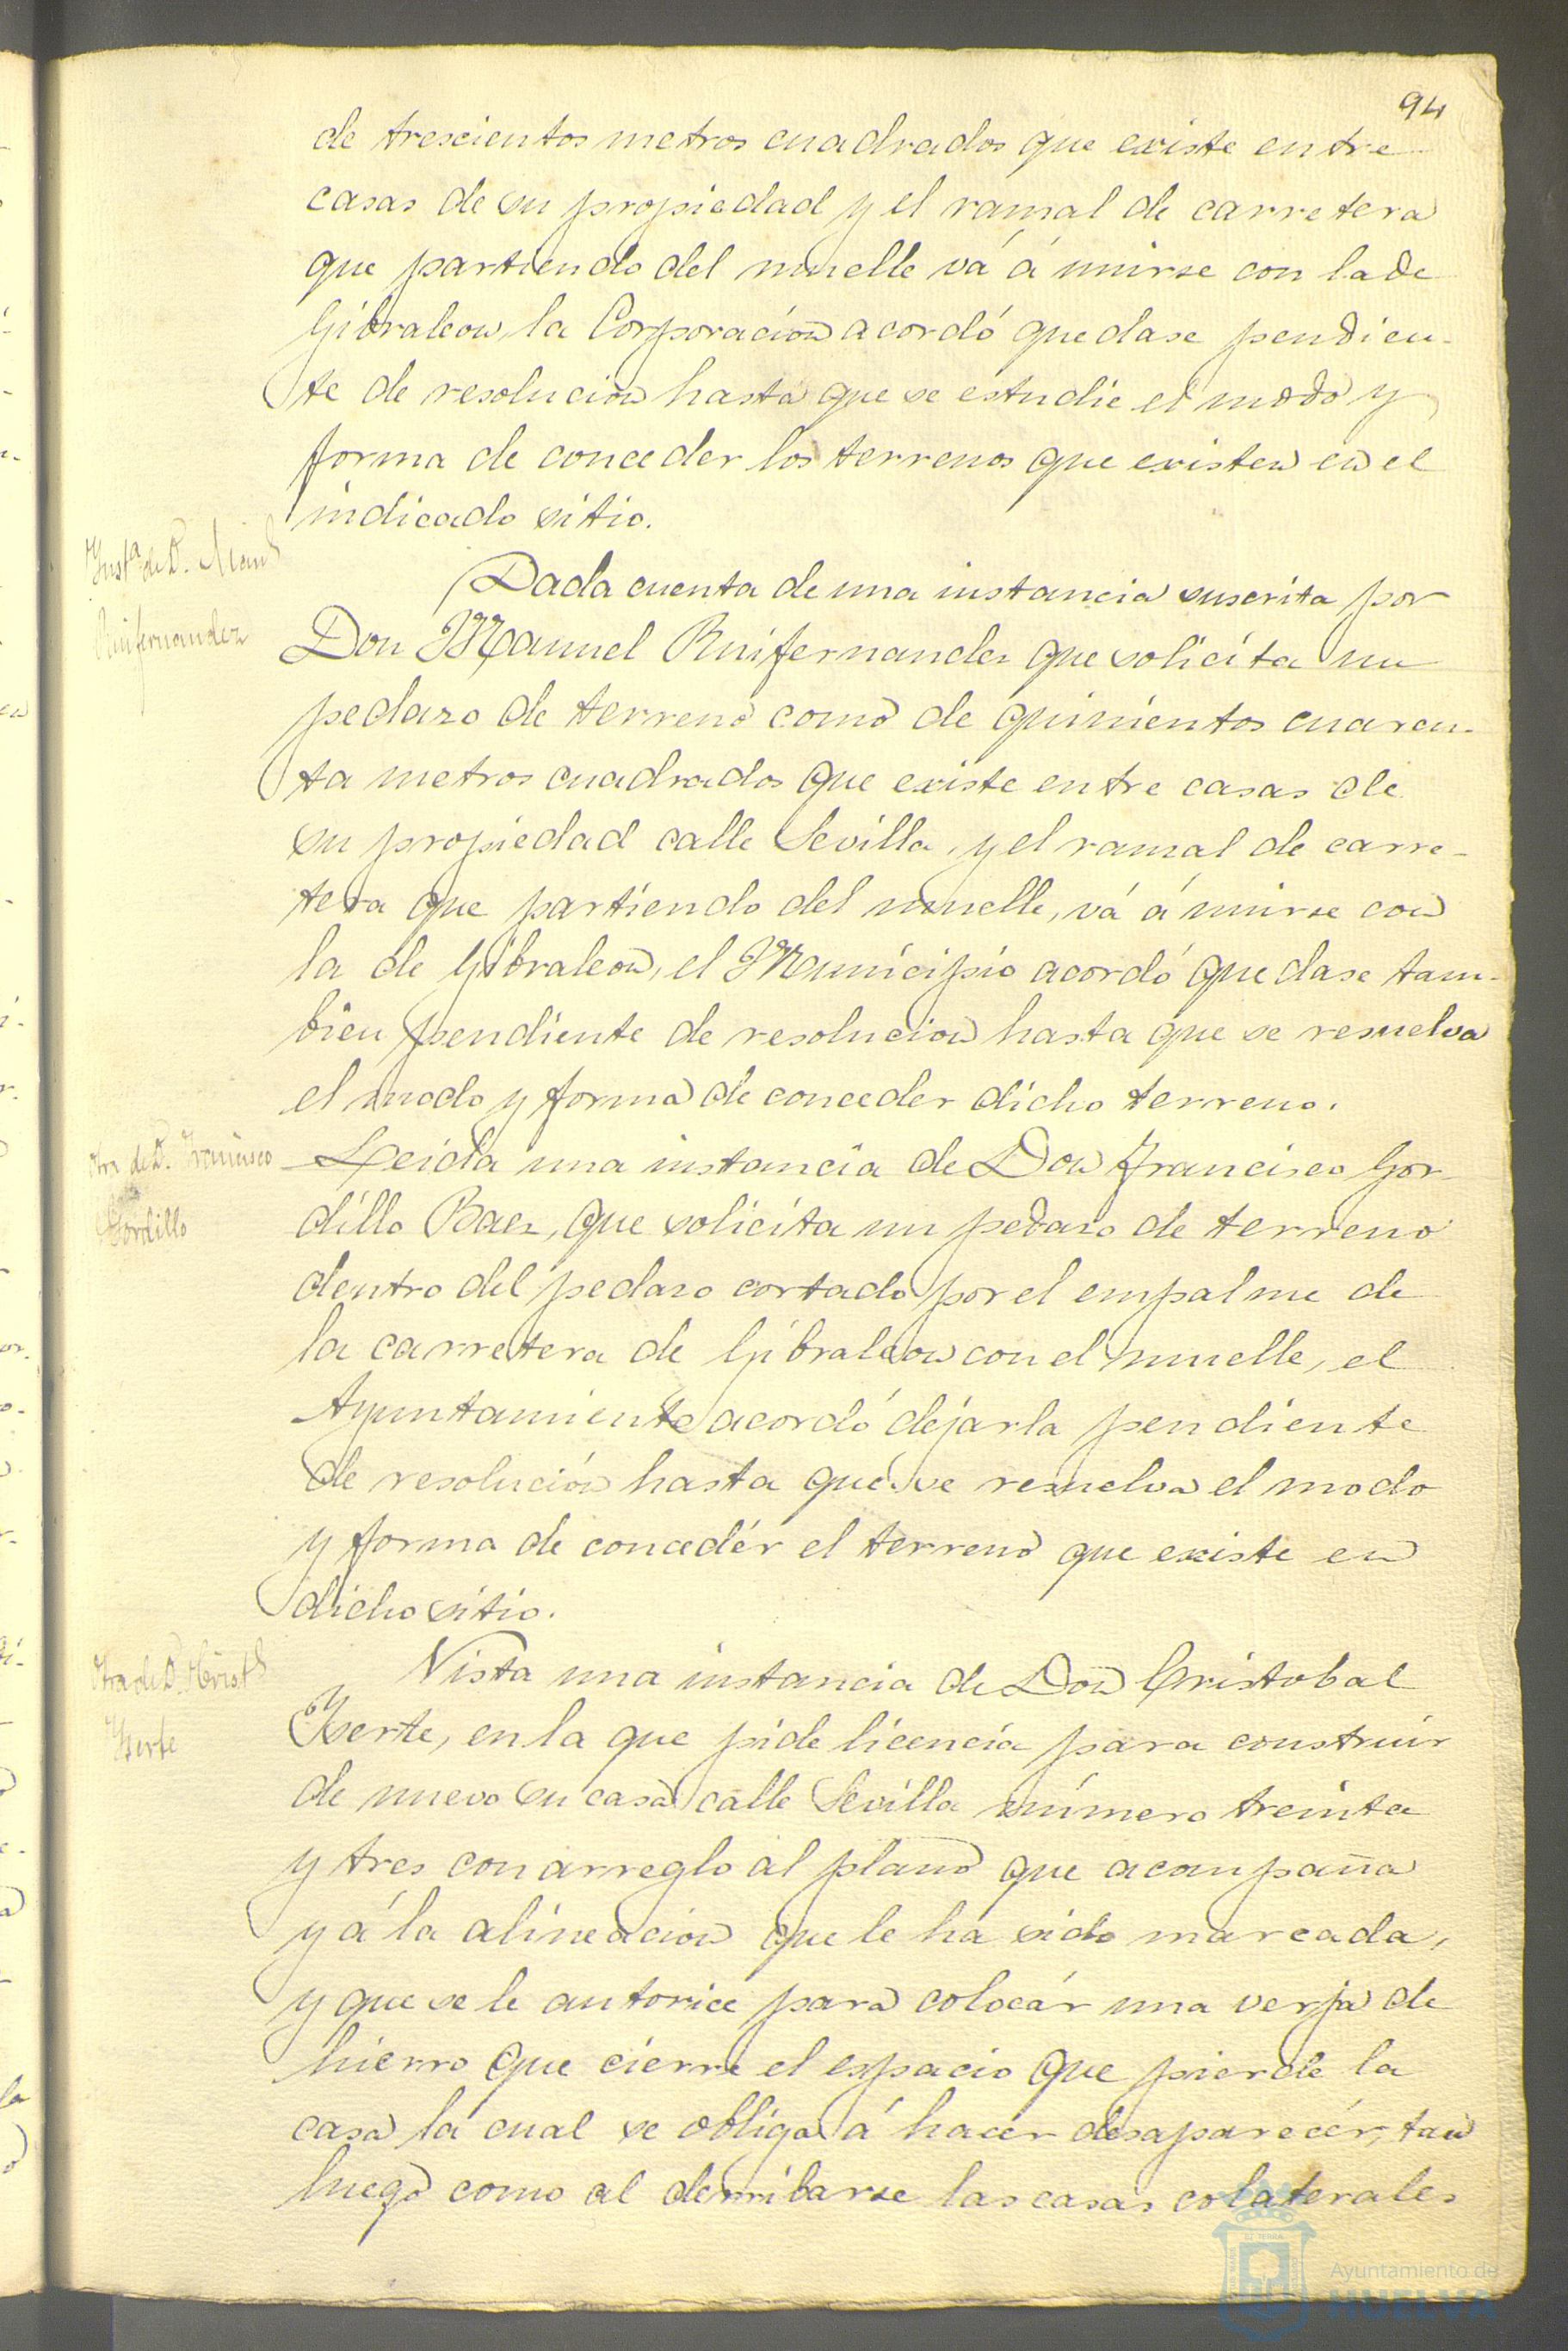 94
de trescientos metros cuadrados que existe entre
casas de su propiedad y el ramal de carretera
que partiendo del muelle vá á unirse con la de
Gibraleon, la Corporacion acordó quedase pendien-
te de resolucion hasta que se estudie el modo y
forma de conceder los terrenos que existen en el
indicado sitio.
Inst.ª de D. Man.l
Ruifernandez
Dada cuenta de una instancia suscrita por
Don Manuel Ruifernandez que solicita un
pedazo de terreno como de quinientos cuaren-
ta metros cuadrados que existe entre casas de
su propiedad calle Sevilla, y el ramal de carre-
tera que partiendo del muelle, vá á unirse con
la de Gibraleon, el Municipio acordó quedase tam-
bien pendiente de resolucion hasta que se resuelva
el modo y forma de conceder dicho terreno.
Otra de D. Francisco
Gordillo
Leida una instancia de Don Francisco Gor-
dillo Baez, que solicita un pedazo de terreno
dentro del pedazo cortado por el empalme de
la carretera de Gibraleon con el muelle, el
Ayuntamiento acordó dejarla pendiente
de resolución hasta que se resuelva el modo
y forma de concedér el terreno que existe en
dicho sitio.
Otra de D. Crist.l
Yserte
Vista una instancia de Don Cristobal
Yserte, en la que pide licencia para construir
de nuevo su casa calle Sevilla número treinta
y tres con arreglo al plano que acompaña
y á la alineacion que le ha sido marcada,
y que se le autorice para colocár una verja de
hierro que cierre el espacio que pierde la
casa la cual se obliga á hacér desaparecér, tan
luego como al derribarse las casas colaterales
Ayuntamiento de
HUELVA